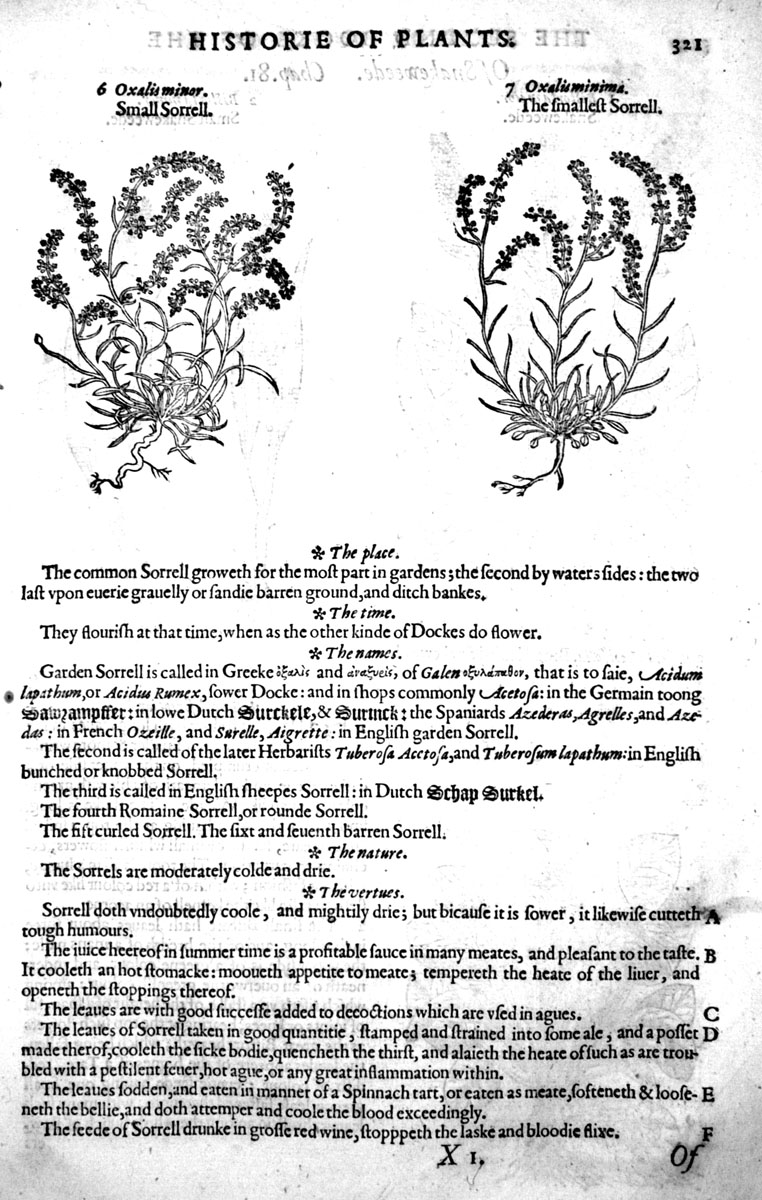 HISTORIE OF PLANTS.
321
6 Oxalis minor.
Small Sorrell.
7 Oxalis minima.
The smallest Sorrell.
✻ The place.
The common Sorrell groweth for the most part in gardens; the second by waters sides: the two
last vpon euerie grauelly or sandie barren ground, and ditch bankes.
✻ The time.
They flourish at that time, when as the other kinde of Dockes do flower.
✻ The names.
Garden Sorrell is called in Greeke ὀξαλὶς and ἀναξυεὶς, of Galen ὀξυλάπαθον, that is to saie, Acidum
lapathum, or Acidus Rumex, sower Docke: and in shops commonly Acetosa: in the Germain toong
Sawrampffer: in lowe Dutch Surckele, & Surinck: the Spaniards Azederas, Agrelles, and Aze-
das: in French Ozeille, and Surelle, Aigrette: in English garden Sorrell.
The second is called of the later Herbarists Tuberosa Acetosa, and Tuberosum lapathum: in English
bunched or knobbed Sorrell.
The third is called in English sheepes Sorrell: in Dutch Schap Surkel.
The fourth Romaine Sorrell, or rounde Sorrell.
The fift curled Sorrell. The sixt and seuenth barren Sorrell.
✻ The nature.
The Sorrels are moderately colde and drie.
✻ The vertues.
Sorrell doth vndoubtedly coole, and mightily drie; but bicause it is sower, it likewise cutteth A
tough humours.
The iuice heereof in summer time is a profitable sauce in many meates, and pleasant to the taste. B
It cooleth an hot stomacke: mooueth appetite to meate; tempereth the heate of the liuer, and
openeth the stoppings thereof.
The leaues are with good successe added to decoctions which are vsed in agues. C
The leaues of Sorrell taken in good quantitie, stamped and strained into some ale, and a posset D
made therof, cooleth the sicke bodie, quencheth the thirst, and alaieth the heate of such as are trou-
bled with a pestilent feuer, hot ague, or any great inflammation within.
The leaues sodden, and eaten in manner of a Spinnach tart, or eaten as meate, softeneth & loose- E
neth the bellie, and doth attemper and coole the blood exceedingly.
The seede of Sorrell drunke in grosse red wine, stopppeth the laske and bloodie flixe. F
X 1.
Of